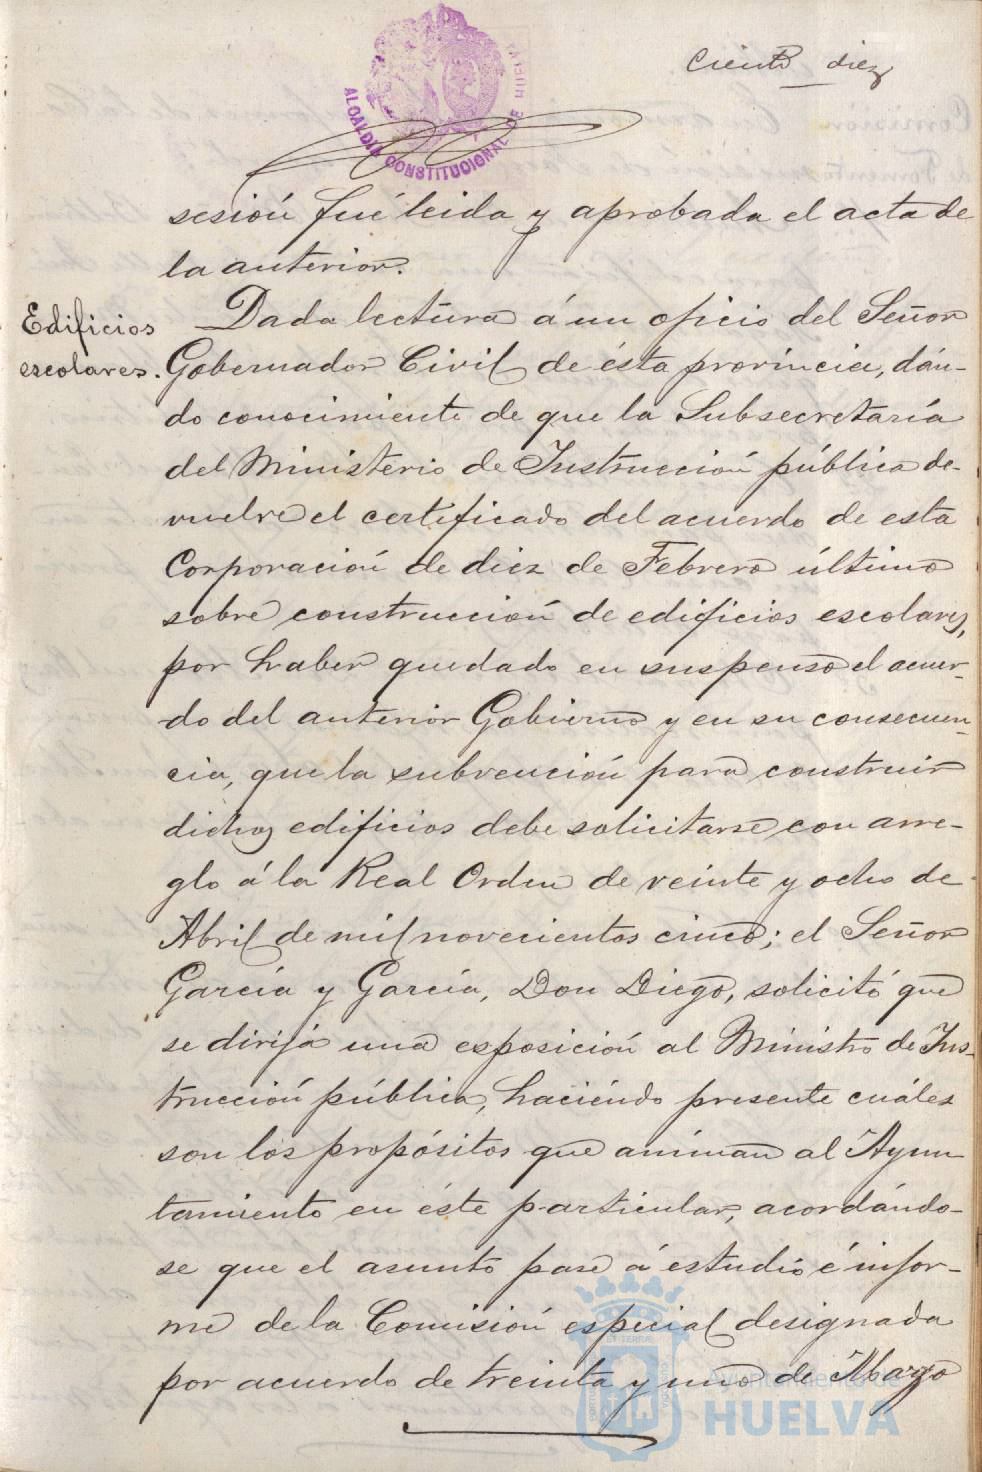 Ciento diez
ALCALDÍA CONSTITUCIONAL DE HUELVA
sesión fué leida y aprobada el acta de
la anterior.
Edificios
escolares.
Dada lectura á un oficio del Señor
Gobernador Civil de ésta provincia, dán-
do conocimiento de que la Subsecretaría
del Ministerio de Instrucción pública de-
vuelve el certificado del acuerdo de esta
Corporación de diez de Febrero último
sobre construcción de edificios escolares,
por haber quedado en suspenso el acuer-
do del anterior Gobierno y en su consecuen-
cia, que la subvención para construir
dichos edificios debe solicitarse con arre-
glo á la Real Orden de veinte y ocho de
Abril de mil novecientos cinco; el Señor
García y García, Don Diego, solicitó que
se dirija una exposición al Ministro de Ins-
trucción pública, haciéndo presente cuáles
son los propósitos que animan al Ayun-
tamiento en éste particular, acordándo-
se que el asunto pase á estudio é infor-
me de la Comisión especial designada
por acuerdo de treinta y uno de Marzo
Ayuntamiento de
HUELVA